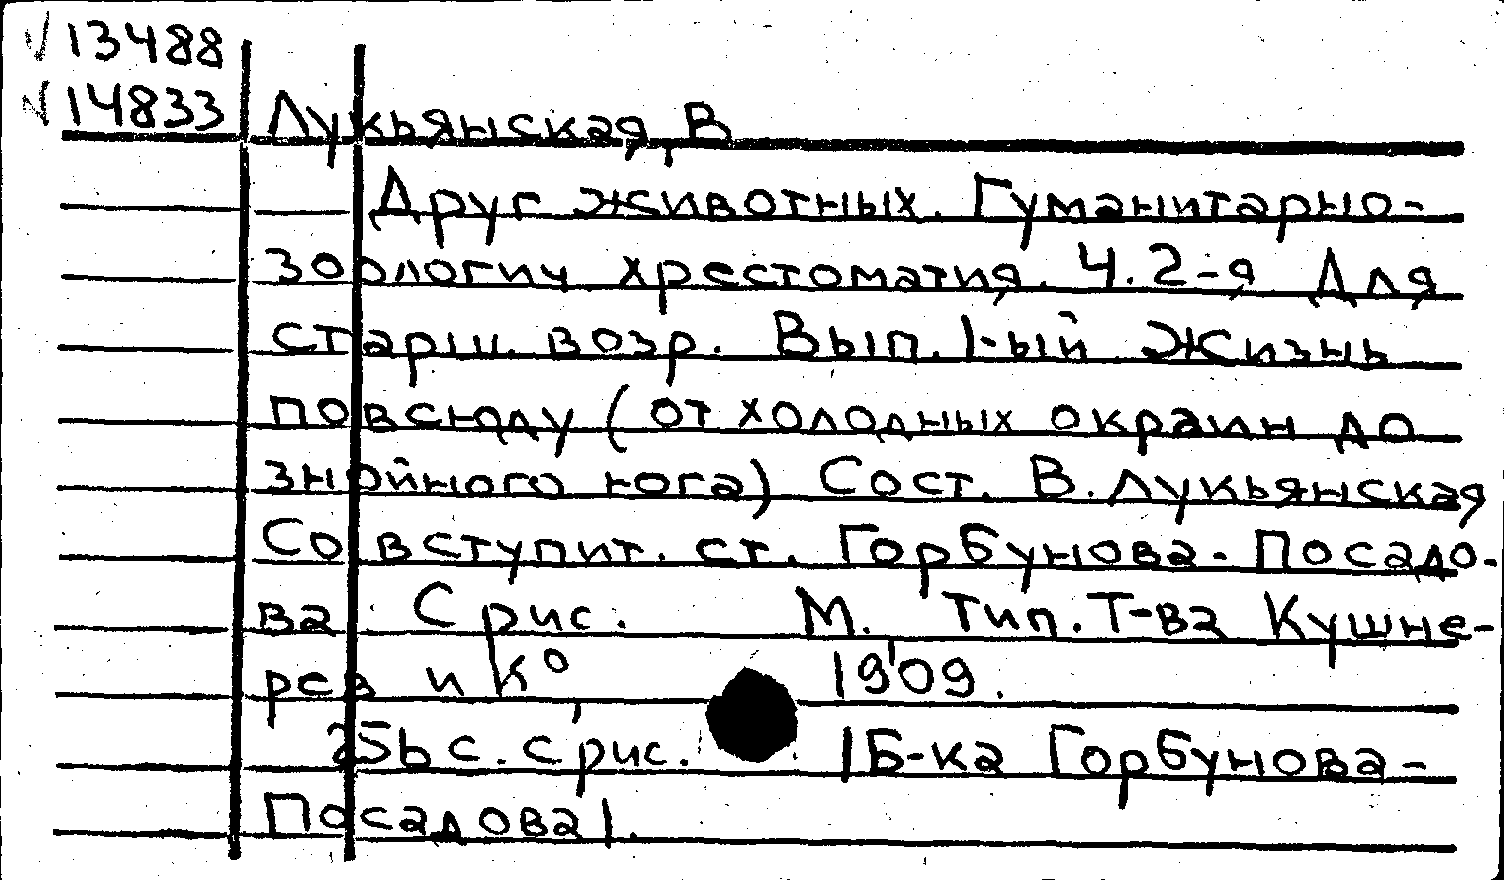 √ 13488
√ 14833 Лукьянская, В
Друг животных. Гуманитарно-
зоологич. хрестоматия. Ч. 2-я. Для
старш. возр. Вып. 1-ый Жизнь
повсюду (от холодных окраин до
знойного юга) Сост. В. Лукьянская
Со вступит. ст. Горбунова-Посадо-
ва. С рис. М. Тип. Т-ва Кушне-
рев и К⁰, 1909.
256 с. с рис. |Б-ка Горбунова-
Посадова|.